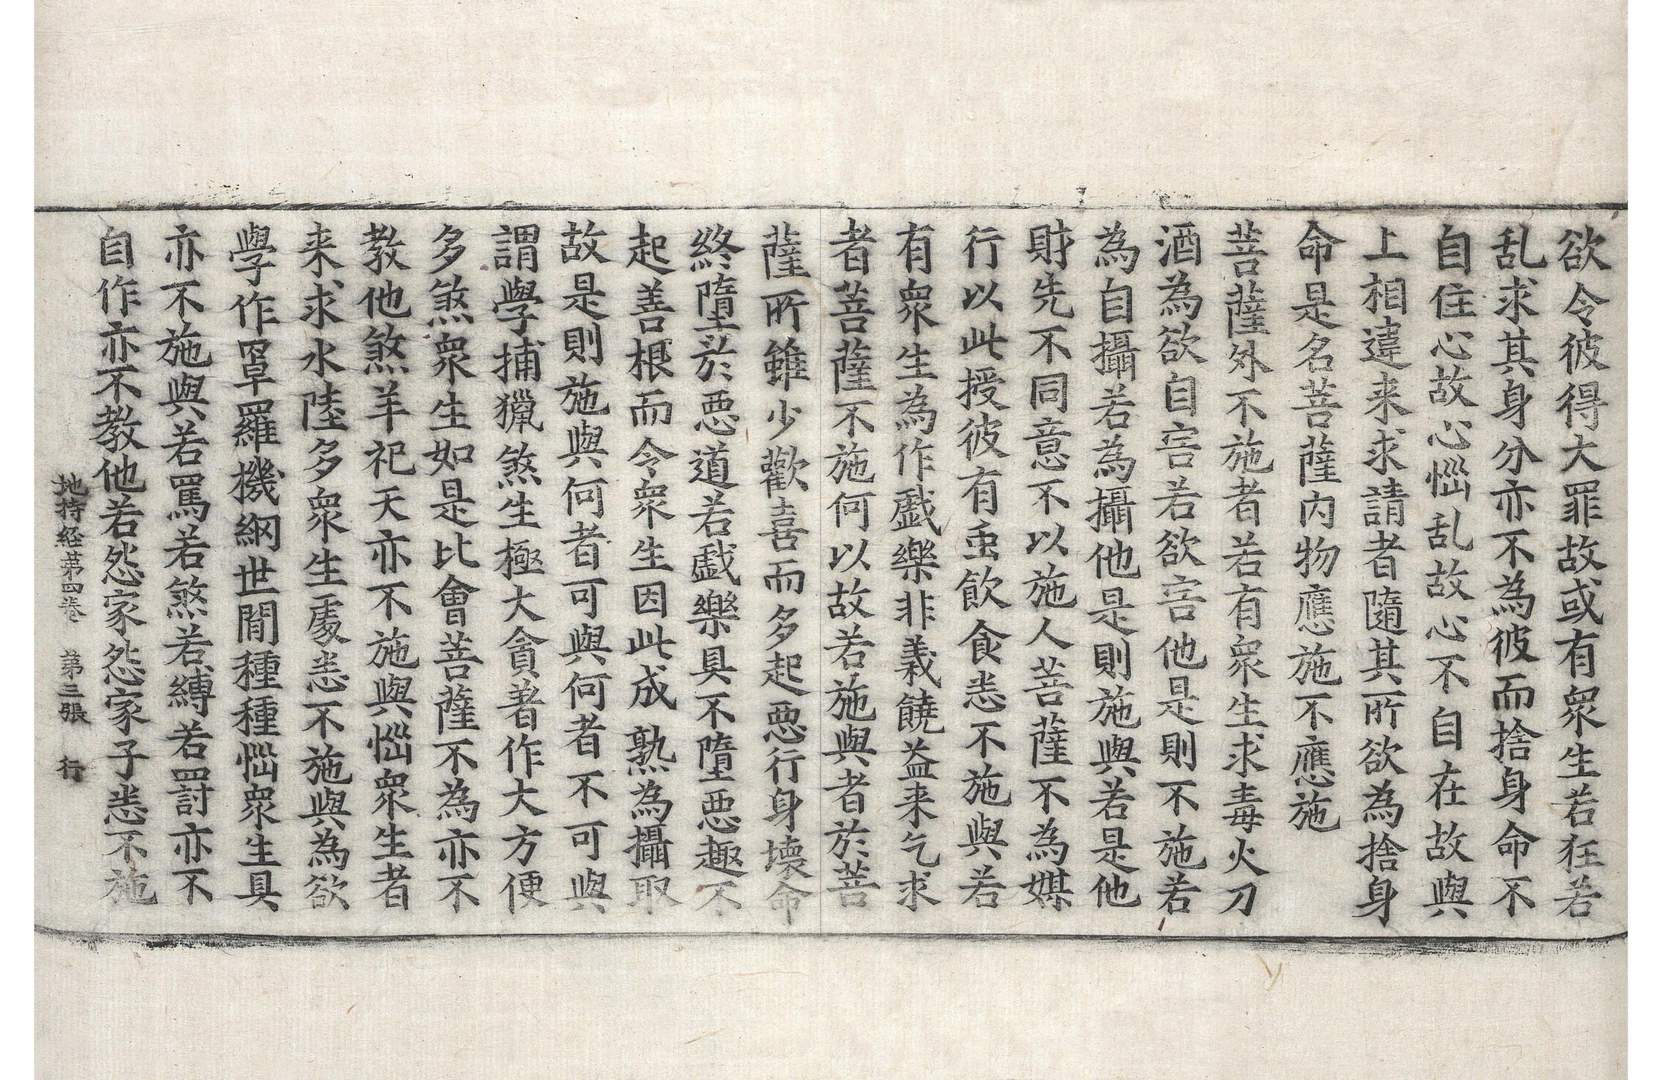 欲令彼得大罪故或有衆生若狂若
乱求其身分亦不為彼而捨身命不
自住心故心惱乱故心不自在故與
上相違来求請者隨其所欲為捨身
命是名菩薩内物應施不應施
菩薩外不施者若有衆生求毒火刀
酒為欲自害若欲害他是則不施若
為自攝若為攝他是則施與若是他
財先不同意不以施人菩薩不為媒
行以此授彼有虫飲食悉不施與若
有衆生為作戲樂非義饒益来乞求
者菩薩不施何以故若施與者於菩
薩所雖少歡喜而多起惡行身壞命
終墮於惡道若戲樂具不墮惡趣不
起善根而令衆生因此成熟為攝取
故是則施與何者可與何者不可與
謂學捕獵煞生極大貪著作大方便
多煞衆生如是比會菩薩不為亦不
教他煞羊祀天亦不施與惱衆生者
来求水陸多衆生處悉不施與為欲
學作罩羅機網世間種種惱衆生具
亦不施與若罵若煞若縛若罸亦不
自作亦不教他若怨家怨家子悉不施
地持経第四卷 第三張 行